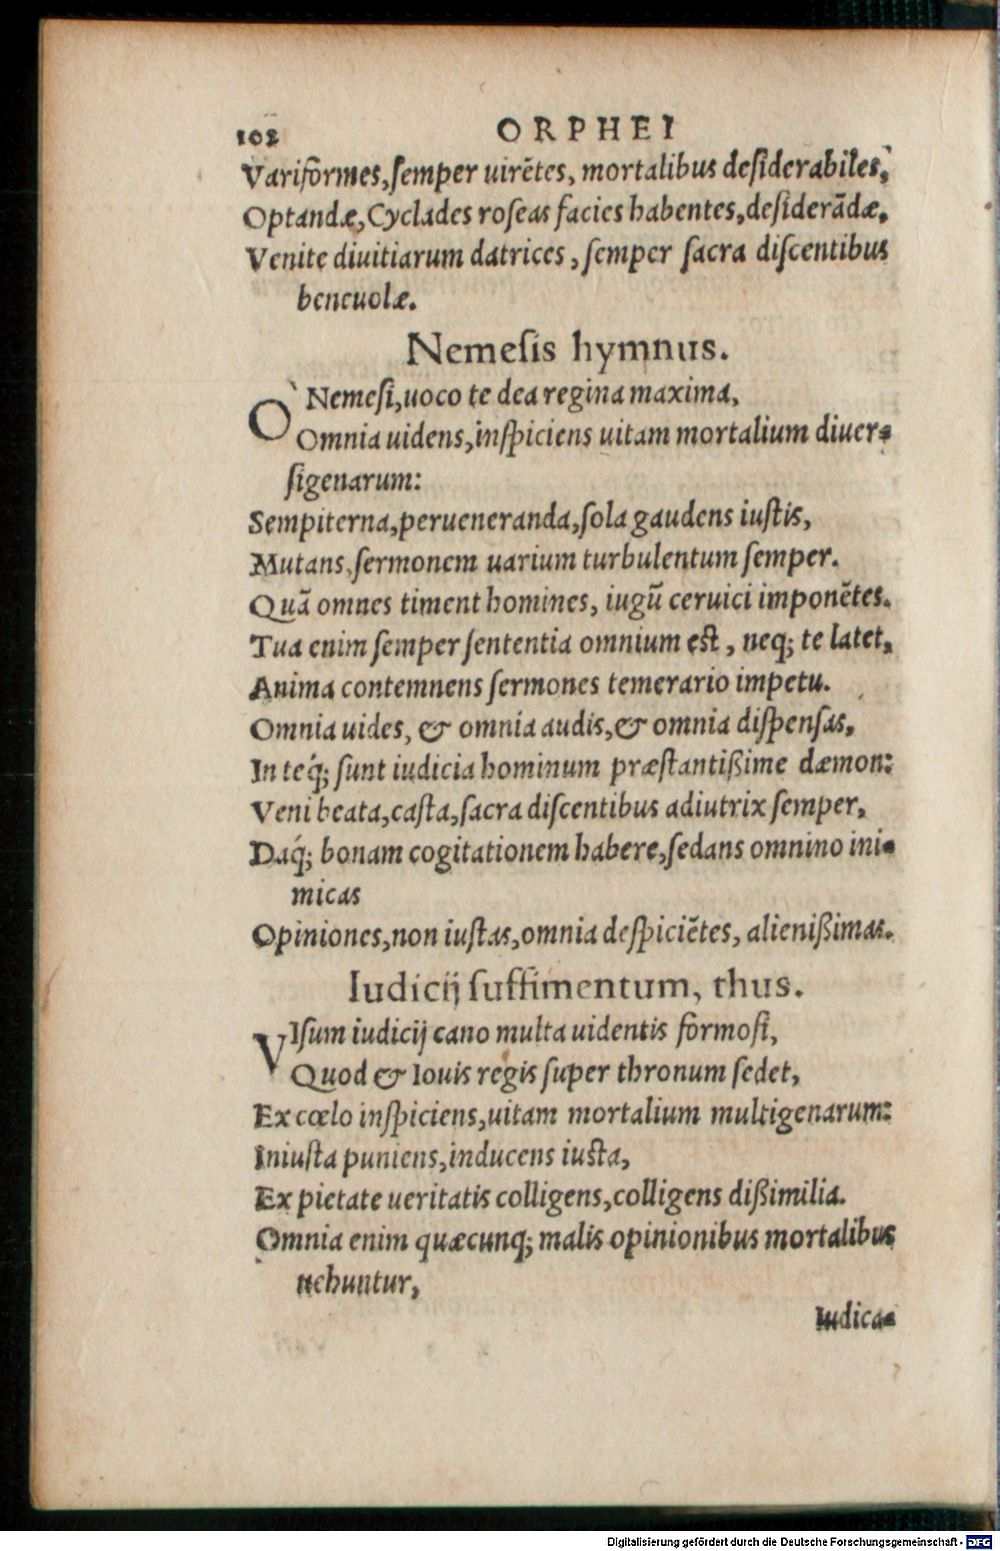 102 ORPHEI
Variformes,ſemper uirẽtes, mortalibus deſiderabiles,
Optandæ,Cyclades roſeas facies habentes,deſiderãdæ.
Venite diuitiarum datrices, ſemper ſacra diſcentibus
beneuolæ.
Nemeſis hymnus.
O Nemeſi,uoco te dea regina maxima,
Omnia uidens,inſpiciens uitam mortalium diuer-
ſigenarum:
Sempiterna,perueneranda,ſola gaudens iuſtis,
Mutans,ſermonem uarium turbulentum ſemper.
Quã omnes timent homines, iugũ ceruici imponẽtes.
Tua enim ſemper ſententia omnium eſt, neq; te latet,
Anima contemnens ſermones temerario impetu.
Omnia uides, & omnia audis,& omnia diſpenſas,
In teq́; ſunt iudicia hominum præſtantißime dæmon:
Veni beata,caſta,ſacra diſcentibus adiutrix ſemper,
Daq́; bonam cogitationem habere,ſedans omnino ini-
micas
Opiniones,non iuſtas,omnia deſpiciẽtes, alienißimas.
Iudicij ſuffimentum, thus.
VIſum iudicij cano multa uidentis formoſi,
Quod & Iouis regis ſuper thronum ſedet,
Ex cœlo inſpiciens,uitam mortalium multigenarum:
Iniuſta puniens,inducens iuſta,
Ex pietate ueritatis colligens,colligens dißimilia.
Omnia enim quæcunq; malis opinionibus mortalibus
uehuntur,
Iudica-
Digitalisierung gefördert durch die Deutsche Forschungsgemeinschaft - DFG